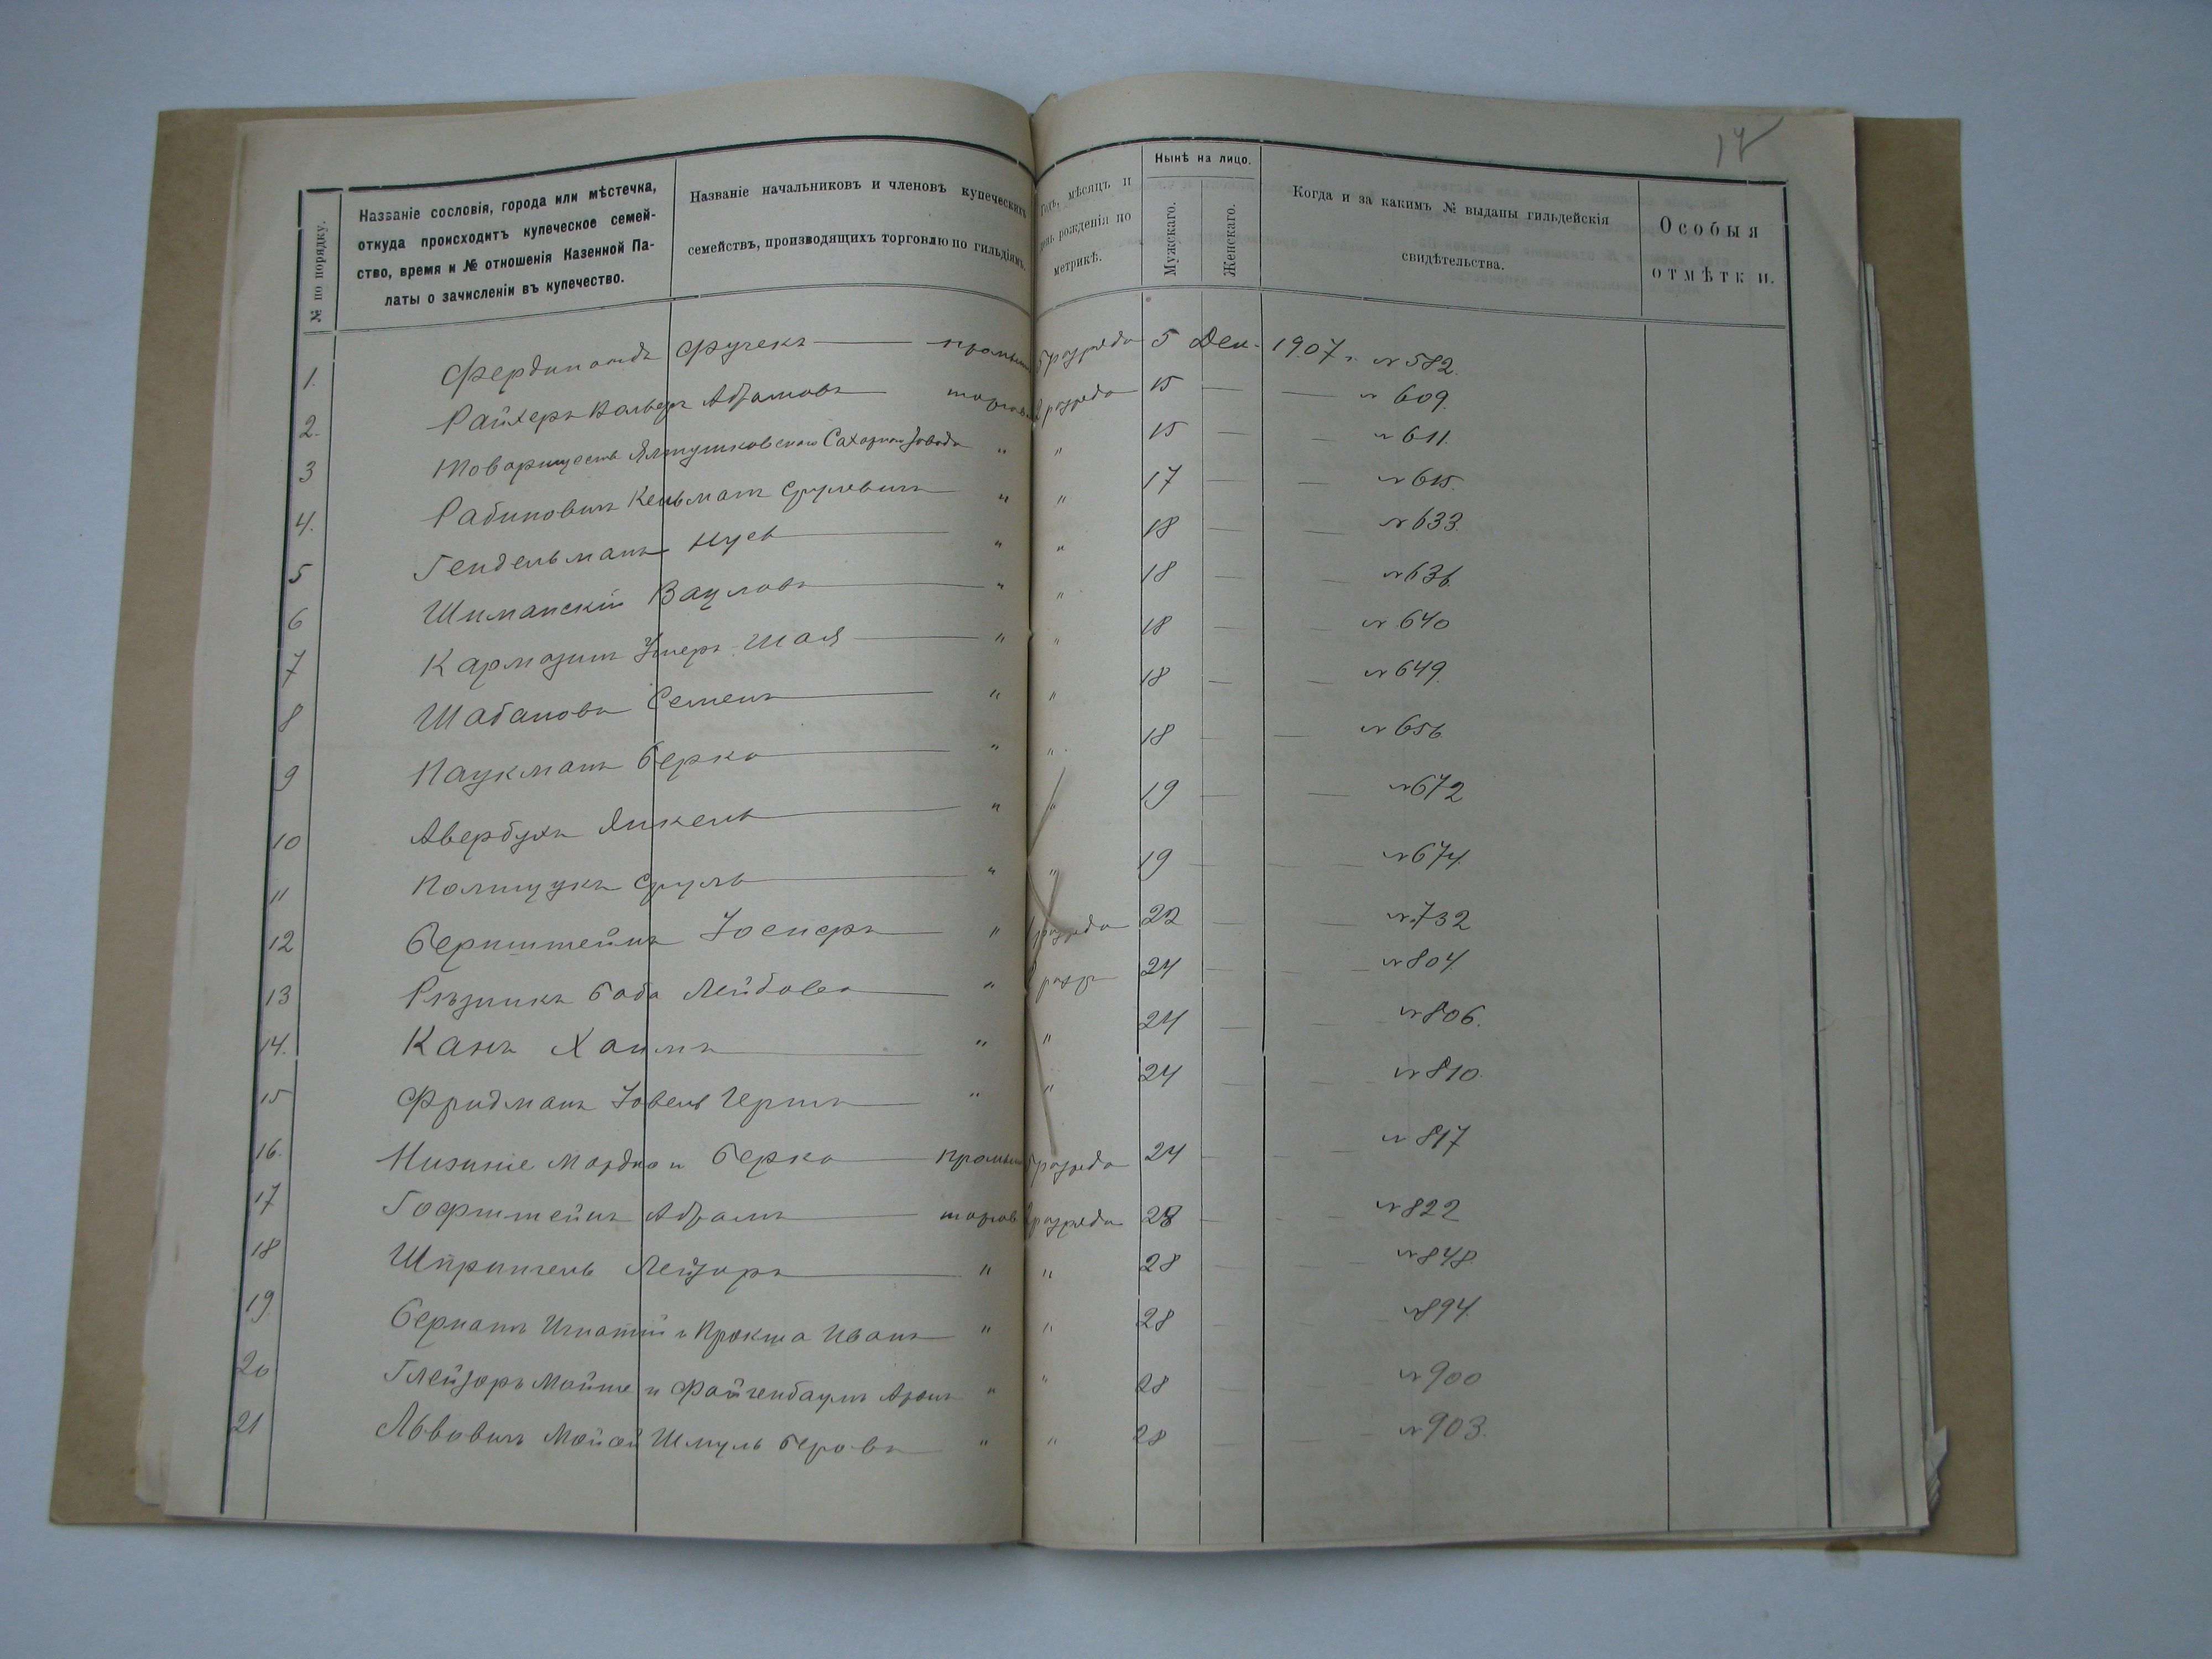 17
№ по порядку.
Названіе сословія, города или мѣстечка,
откуда происходитъ купеческое семей-
ство, время и № отношенія Казенной Па-
латы о зачисленіи въ купечество.
Названіе начальниковъ и членовъ купеческихъ
семействъ, производящихъ торговлю по гильдіямъ.
Годъ, мѣсяцъ и
день рожденія по
метрикѣ.
Нынѣ на лицо.
Мужскаго.
Женскаго.
Когда и за какимъ № выданы гильдейскія
свидѣтельства.
Особыя
отмѣтки.
1. Фердинандъ Фучекъ — промыш 5 разряда 5 Дек. 1907 г. № 582.
2. Райхеръ Вольфъ Абрамовъ — торгов 2 разряда 15 — — № 609.
3 Товарищество Ялтушковскаго Сахарнаго Завода " " 15 — — № 611.
4. Рабиновичъ Кельманъ Сруловичъ " " 17 — — № 615.
5 Гендельманъ Нусь — " " 18 — — № 633.
6 Шиманскій Вацлавъ — " " 18 — — № 636.
7 Кармазинъ Умеръ-Шая — " " 18 — — № 640
8 Шабановъ Семенъ — " " 18 — — № 649.
9 Паукманъ Берко — " " 18 — — № 656
10 Авербухъ Янкель — " " 19 — — № 672
11 Полищукъ Сруль — " " 19 — — № 674.
12 Бернштейнъ Іосифъ — " 1 разряда 22 — — № 732
13 Рѣзникъ Баба Лейбова — " 2 разр 24 — — № 804.
14. Канъ Хаимъ — " " 24 — — № 806.
15 Фридманъ Іовель Гершъ — " " 24 — — № 810.
16. Мордко и Берко — промыш 5 разряда 24 — — № 817
17 Гофштейнъ Абрамъ — торгов 2 разряда 28 — — № 822
18 Шпригель Лейзоръ — " " 28 — — № 848.
19. Бернатъ Игнатій и Прокша Иванъ — " " 28 — — № 894.
20 Глейзеръ Мойше и Файгенбаумъ Аронъ " " 28 — — № 900
21 Львовичъ Мойсей Шмуль Беровъ — " " 28 — — № 903.